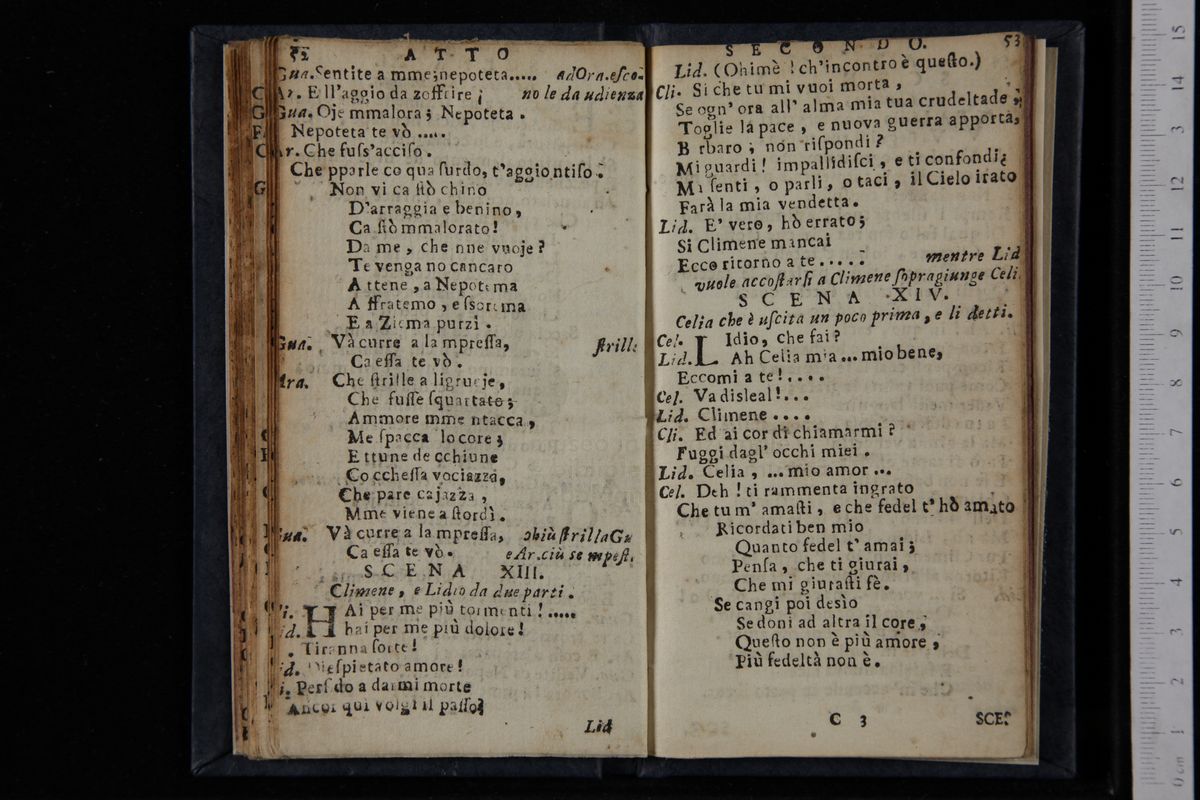 52 ATTO
Gua. Sentite a mme; nepoteta..... ad Ora. esco-
Ar. E ll'aggio da zoffrire; no le da udienza
Gua. Oje mmalora; Nepoteta.
Nepoteta te vò .....
Ar. Che fuss'acciso.
Che pparle co qua surdo, t'aggio ntiso.
Non vi ca stò chino
D'arraggia e benino,
Ca stò mmalorato!
Da me, che nne vuoje?
Te venga no cancaro
A ttene, a Nepotema
A ffratemo, e ssorema
E a Ziema purzì.
Gua. Và curre a la mpressa, strill:
Ca essa te vò.
Ara. Che strille a ligrueje,
Che fusse squartato;
Ammore mme ntacca,
Me spacca lo core;
E ttune de cchiune
Co cchessa vociazza,
Che pare cajazza,
Mme viene a stordì.
Gua. Và curre a la mpressa, chiù strilla Gu
Ca essa te vò. e Ar. ciù se mpest.
SCENA XIII.
Climene, e Lidio da due parti.
i. HAi per me più tormenti!.....
id. hai per me più dolore!
Tiranna sorte!
id. Dispietato amore!
i. Perfido a darmi morte
Ancor qui volgi il passo?
Lid
SECONDO. 53
Lid. (Ohimè! ch'incontro è questo.)
Cli. Si che tu mi vuoi morta,
Se ogn' ora all' alma mia tua crudeltade;
Toglie la pace, e nuova guerra apporta,
B rbaro; non rispondi?
Mi guardi! impallidisci, e ti confondi?
Mi senti, o parli, o taci, il Cielo irato
Farà la mia vendetta.
Lid. E' vero, hò errato;
Si Climene mancai
Ecco ritorno a te ..... mentre Lid
vuole accostarsi a Climene sopragiunge Celi.
SCENA XIV.
Celia che è uscita un poco prima, e li detti.
Cel. LIdio, che fai?
Lid. Ah Celia mia... mio bene,
Eccomi a te!....
Cel. Va disleal!...
Lid. Climene ....
Cli. Ed ai cor di chiamarmi?
Fuggi dagl' occhi miei.
Lid. Celia, ...mio amor ...
Cel. Deh! ti rammenta ingrato
Che tu m' amasti, e che fedel t' hò amato
Ricordati ben mio
Quanto fedel t' amai;
Pensa, che ti giurai,
Che mi giurasti fè.
Se cangi poi desìo
Se doni ad altra il core,
Questo non è più amore,
Più fedeltà non è.
C 3 SCE.